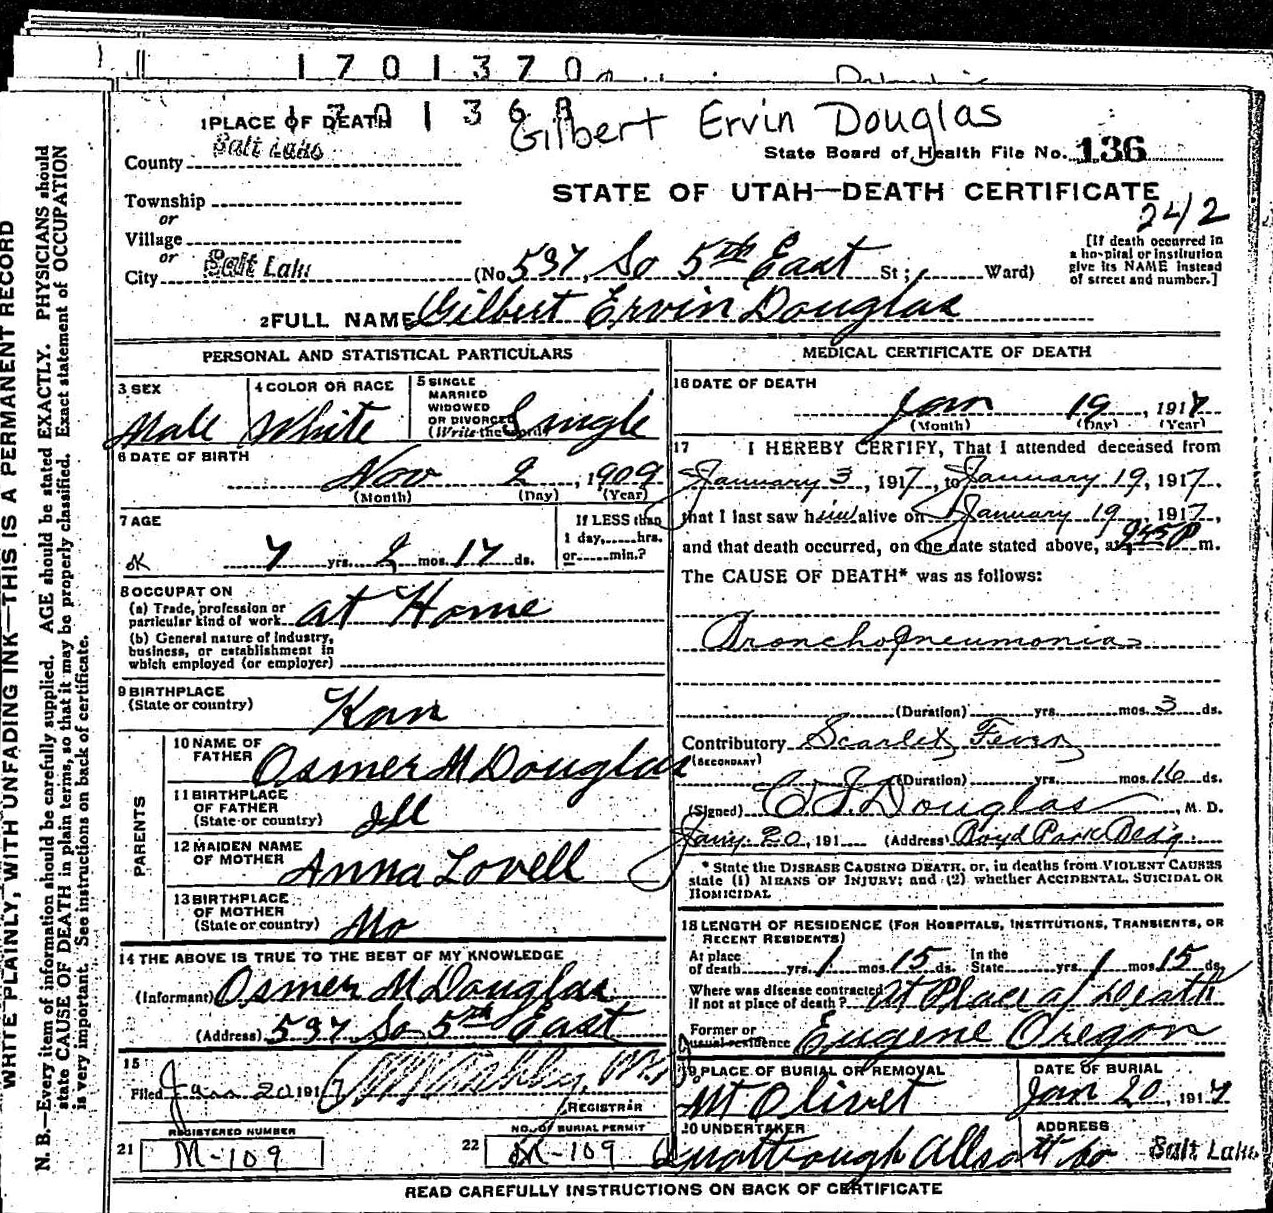 1701370
170136
Gilbert Ervin Douglas
1 PLACE OF DEATH
County Salt Lake
State Board of Health File No. 136
Township
or
Village
or
City Salt Lake
STATE OF UTAH—DEATH CERTIFICATE
2412
(No 537, So 5th East St; Ward)
[If death occurred in
a hospital or institution
give its NAME instead
of street and number.]
2 FULL NAME Gilbert Ervin Douglas
PERSONAL AND STATISTICAL PARTICULARS
3 SEX
Male
4 COLOR OR RACE
White
5 SINGLE
MARRIED
WIDOWED
OR DIVORCED
(Write the word)
Single
6 DATE OF BIRTH
Nov 2, 1909
(Month) (Day) (Year)
7 AGE
7 yrs. 2 mos. 17 ds.
If LESS than
1 day, hrs.
or min.?
8 OCCUPATON
(a) Trade, profession or
particular kind of work at Home
(b) General nature of industry,
business, or establishment in
which employed (or employer)
9 BIRTHPLACE
(State or country)
Kan
PARENTS
10 NAME OF
FATHER
Osmer M Douglas
11 BIRTHPLACE
OF FATHER
(State or country)
Ill
12 MAIDEN NAME
OF MOTHER
Anna Lovell
13 BIRTHPLACE
OF MOTHER
(State or country)
Mo
14 THE ABOVE IS TRUE TO THE BEST OF MY KNOWLEDGE
(Informant) Osmer M Douglas
(Address) 537 So 5th East
15
Filed Jan 20 1917
REGISTRAR
21
REGISTERED NUMBER
M-109
22
NO. OF BURIAL PERMIT
M-109
MEDICAL CERTIFICATE OF DEATH
16 DATE OF DEATH
Jan 19, 1917
(Month) (Day) (Year)
17 I HEREBY CERTIFY, That I attended deceased from
January 3, 1917, to January 19, 1917,
that I last saw him alive on January 19 1917,
and that death occurred, on the date stated above, at 9:55 P m.
The CAUSE OF DEATH* was as follows:
Bronchopneumonia
(Duration) yrs. mos. 3 ds.
Contributory Scarlet Fever
(SECONDARY)
(Duration) yrs. mos. 16 ds.
(Signed) Douglas, M. D.
Jany. 20, 191 (Address) Boyd Park Bldg.
* State the DISEASE CAUSING DEATH, or, in deaths from VIOLENT CAUSES
state (1) MEANS OF INJURY; and (2) whether ACCIDENTAL, SUICIDAL OR
HOMICIDAL
18 LENGTH OF RESIDENCE (FOR HOSPITALS, INSTITUTIONS, TRANSIENTS, OR
RECENT RESIDENTS)
At place
of death yrs. 1 mos. 15 ds.
In the
State yrs. 1 mos. 15 ds.
Where was disease contracted
if not at place of death? At Place of Death
Former or
usual residence Eugene Oregon
19 PLACE OF BURIAL OR REMOVAL
Mt Olivet
DATE OF BURIAL
Jan 20, 1917
20 UNDERTAKER
ADDRESS
Salt Lake
READ CAREFULLY INSTRUCTIONS ON BACK OF CERTIFICATE
WRITE PLAINLY, WITH UNFADING INK—THIS IS A PERMANENT RECORD
N. B.—Every item of information should be carefully supplied. AGE should be stated EXACTLY. PHYSICIANS should
state CAUSE OF DEATH in plain terms, so that it may be properly classified. Exact statement of OCCUPATION
is very important. See instructions on back of certificate.